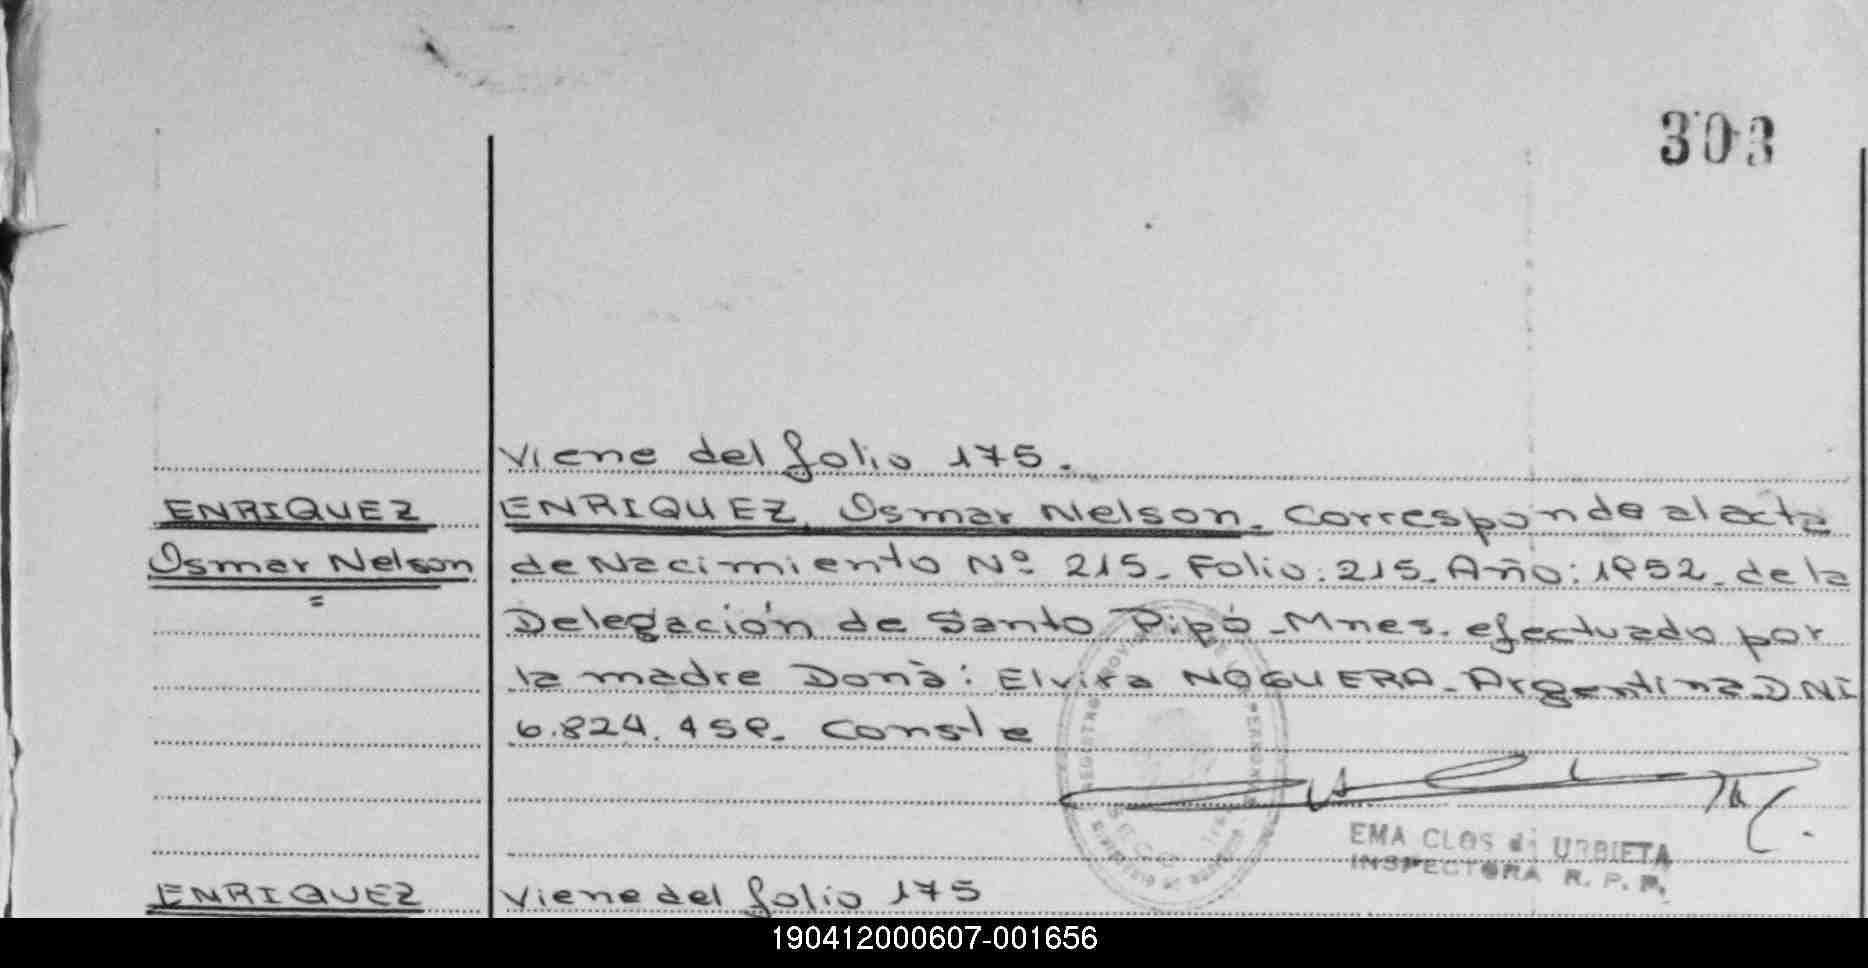 303
Viene del folio 175.
ENRIQUEZ
Osmar Nelson
=
ENRIQUEZ, Osmar Nelson. Corresponde al acta
de Nacimiento Nº 215. Folio: 215. Año: 1952. de la
Delegación de Santo Pipó - Mnes. efectuado por
la madre Donà: Elvira NOGUERA. Argentina. DNI
6.824.459. Conste
REGISTRO PROV DE PERSONAS
EMA CLOS di URBIETA
INSPECTORA R. P. P.
ENRIQUEZ
Viene del folio 175
190412000607-001656